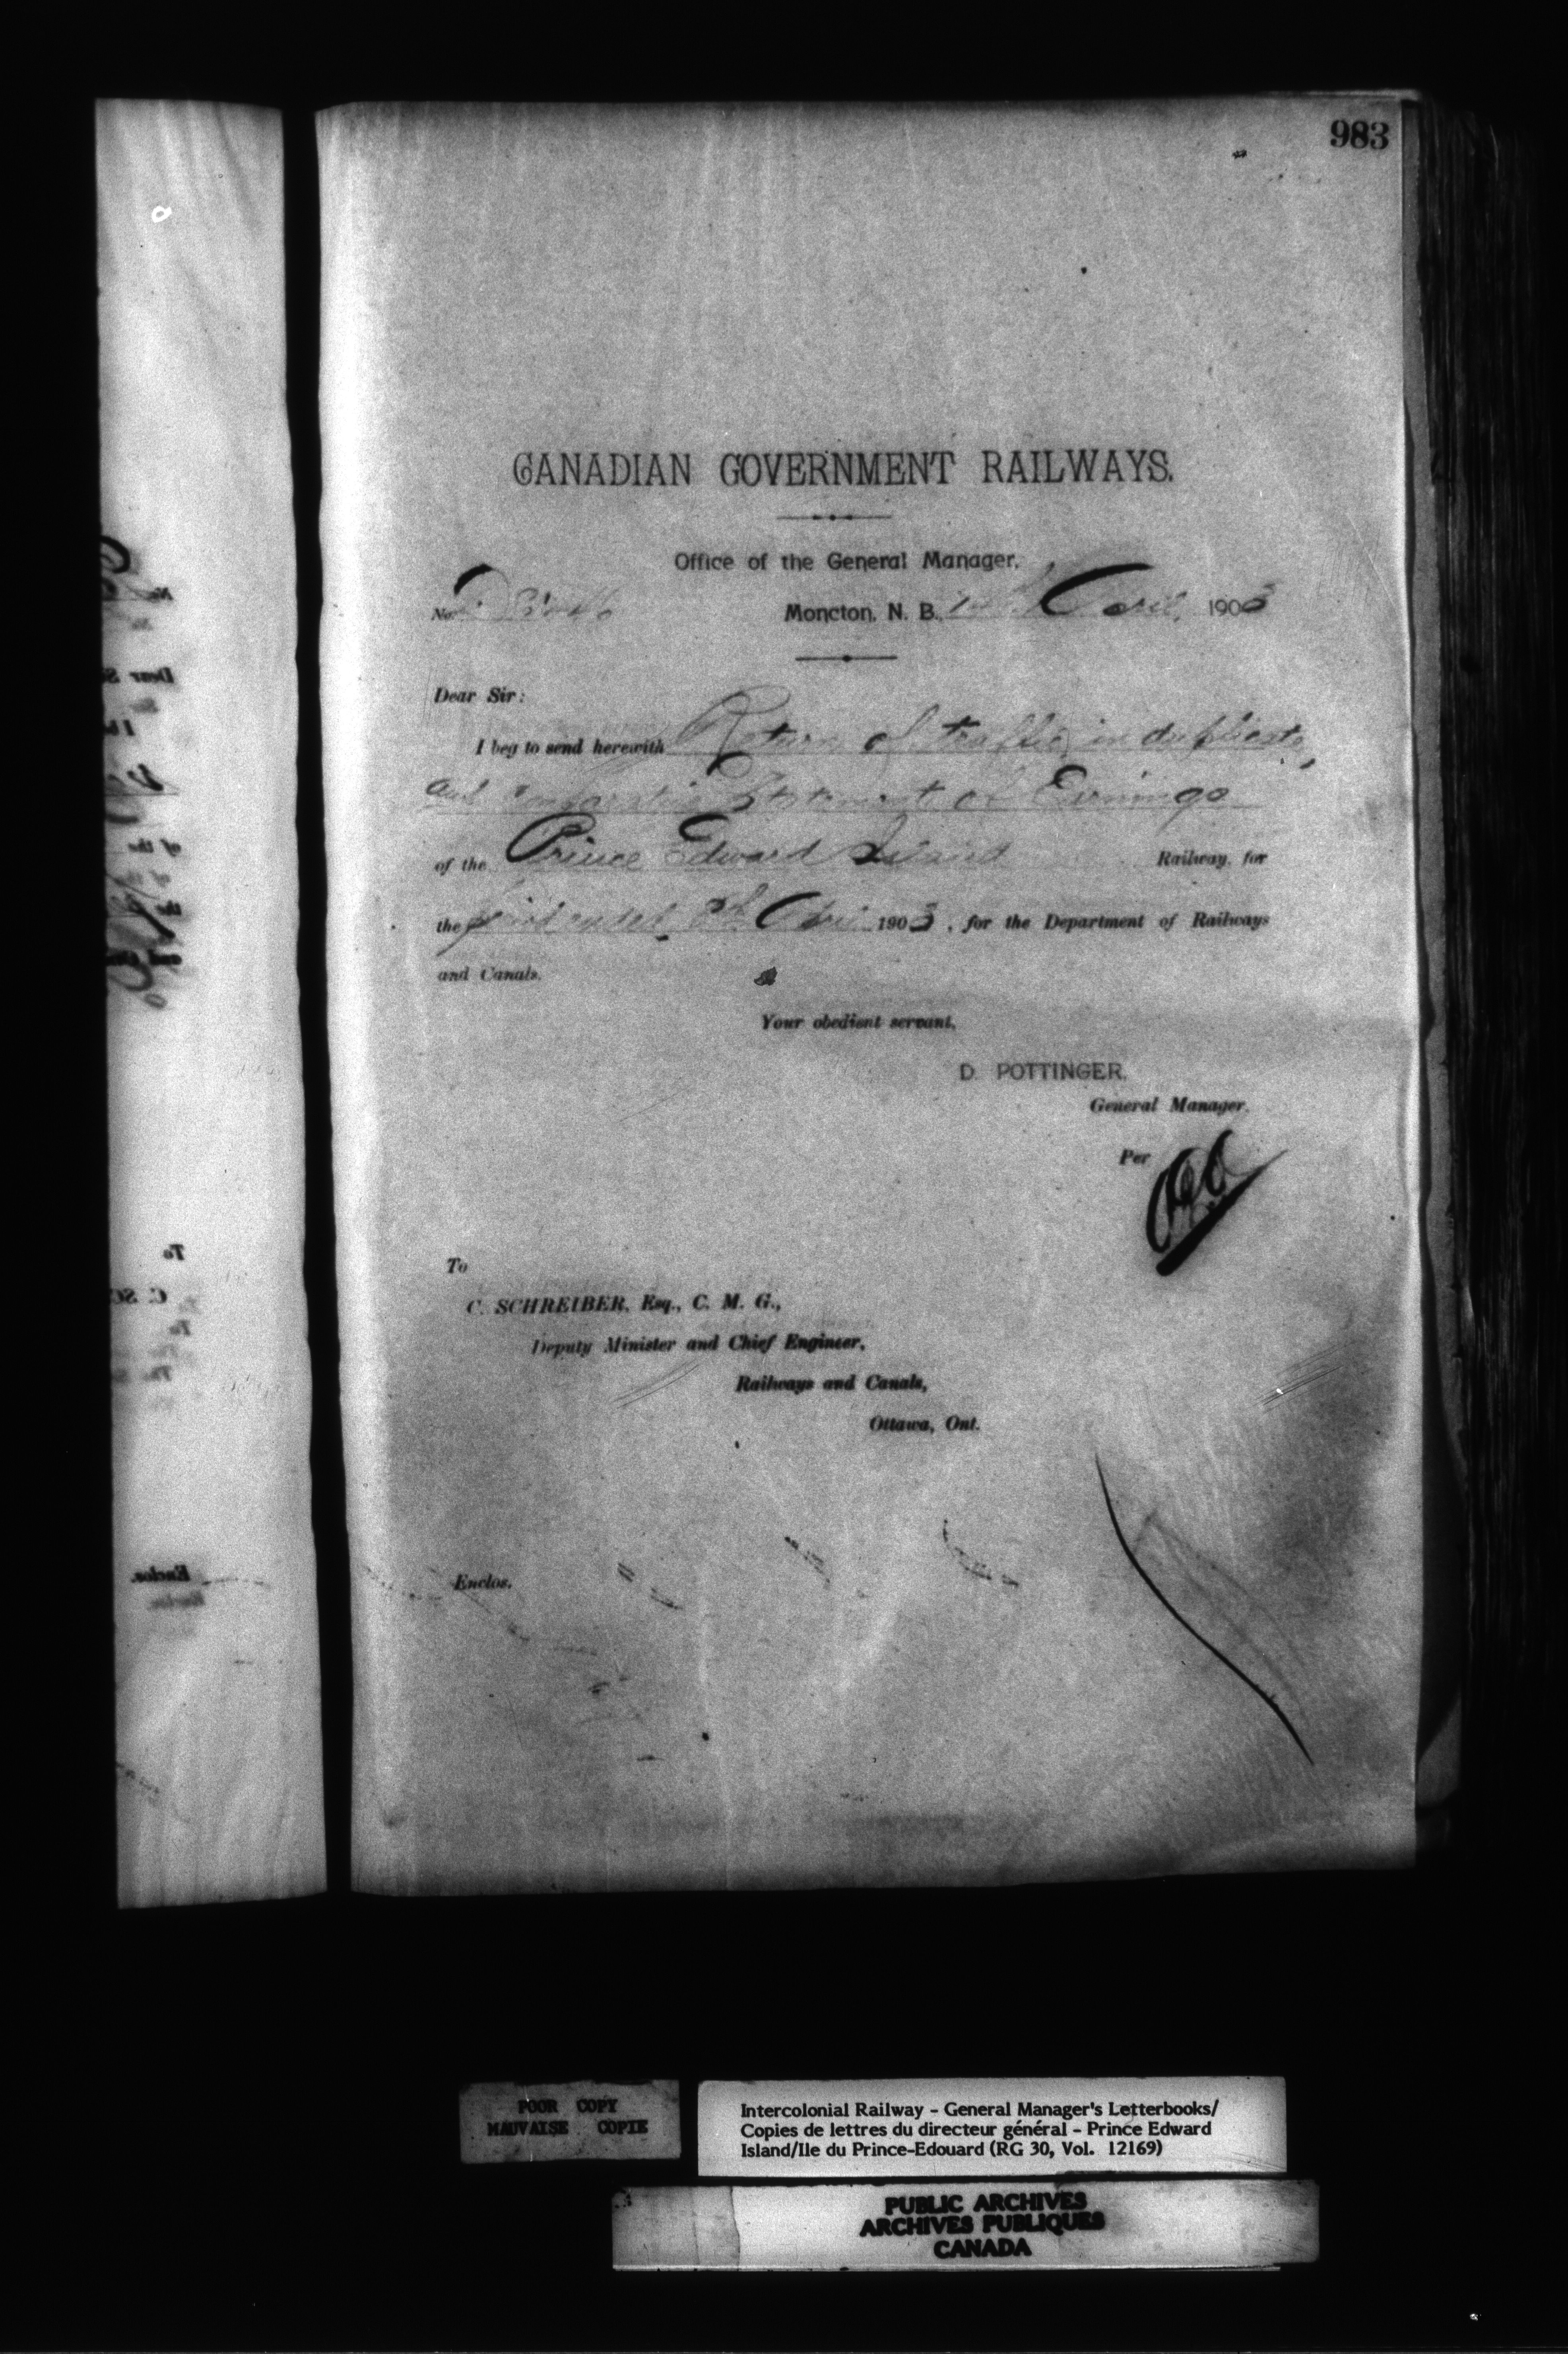 983
CANADIAN GOVERNMENT RAILWAYS.
Office of the General Manager,
No.
Moncton, N. B., April, 1903
Dear Sir:
I beg to send herewith Return of traffic, in duplicate,
and Comparative Statement of Earnings
of the Prince Edward Island Railway, for
the period ended April 1903, for the Department of Railways
and Canals.
Your obedient servant,
D. POTTINGER,
General Manager.
Per
To
C. SCHREIBER, Esq., C. M. G.,
Deputy Minister and Chief Engineer,
Railways and Canals,
Ottawa, Ont.
Enclos.
POOR COPY
MAUVAISE COPIE
Intercolonial Railway - General Manager's Letterbooks/
Copies de lettres du directeur général - Prince Edward
Island/Ile du Prince-Edouard (RG 30, Vol. 12169)
PUBLIC ARCHIVES
ARCHIVES PUBLIQUES
CANADA